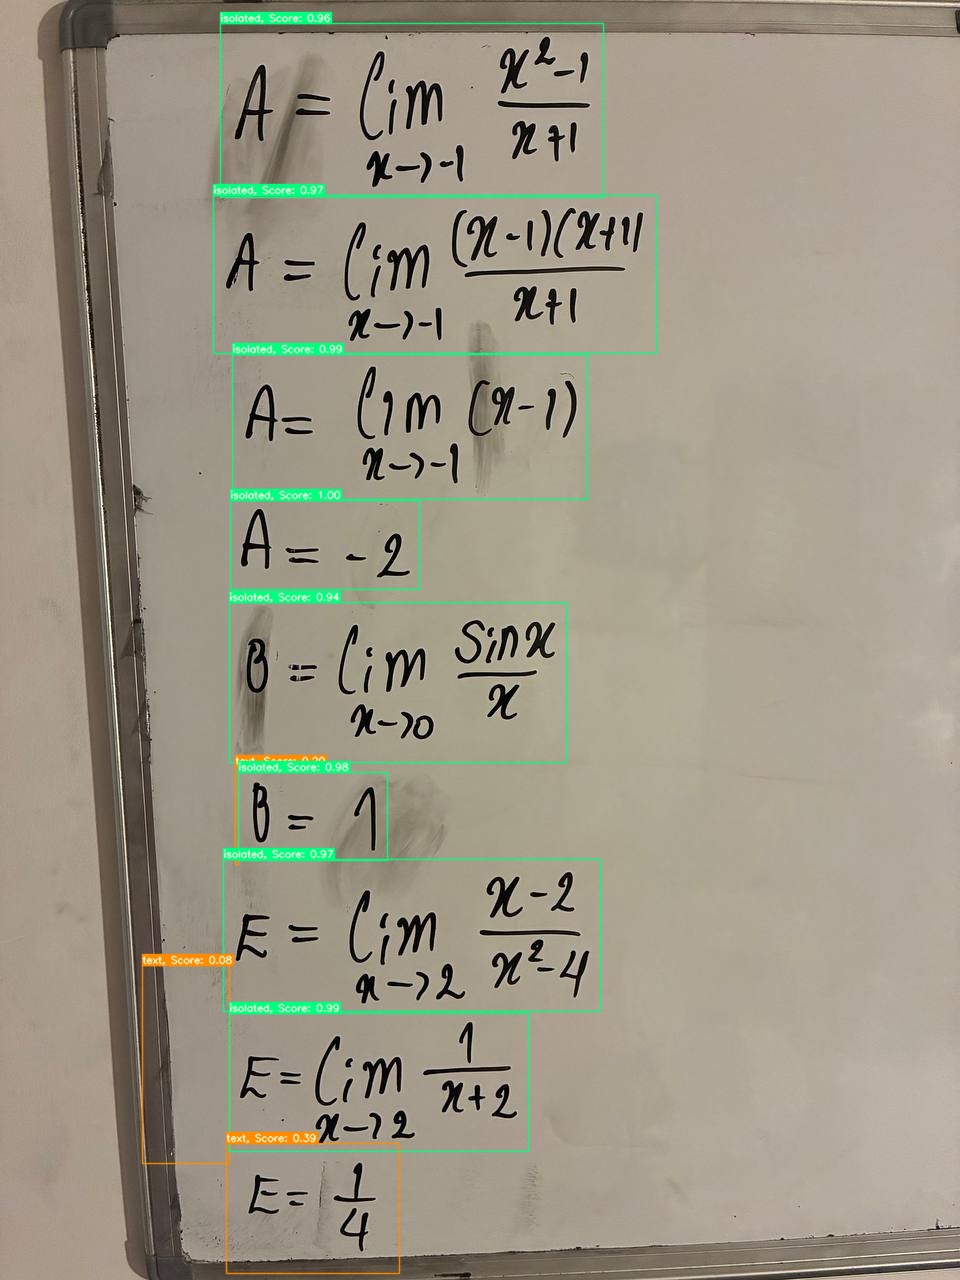 isolated, Score: 0.96
A = lim x→-1 (x²-1)/(x+1)
isolated, Score: 0.97
A = lim x→-1 ((x-1)(x+1))/(x+1)
isolated, Score: 0.99
A = lim x→-1 (x-1)
isolated, Score: 1.00
A = -2
isolated, Score: 0.94
B = lim x→0 (sin x)/x
isolated, Score: 0.98
B = 1
isolated, Score: 0.97
E = lim x→2 (x-2)/(x²-4)
text, Score: 0.08
isolated, Score: 0.99
E = lim x→2 1/(x+2)
text, Score: 0.39
E = 1/4